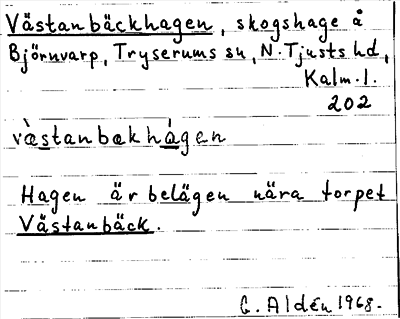 Västanbäckhagen, skogshage å
Björnvarp, Tryserums sn, N. Tjusts hd,
Kalm. l.
202
væ̀stanbækhágen
Hagen är belägen nära torpet
Västanbäck.
G. Aldén 1968.